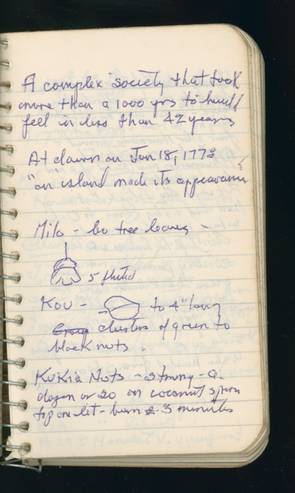 A complex society that took
more than a 1000 yrs to build
fell in less than 42 years
At dawn on Jan 18, 1778
"an island made its appearance
Milo - bu tree leaves -
5 fluted
Kou - to 4" long
clusters of green to
black nuts.
KuKia Nuts - strung - a
dozen or 20 on coconut
top one lit - burn 2-3 minutes